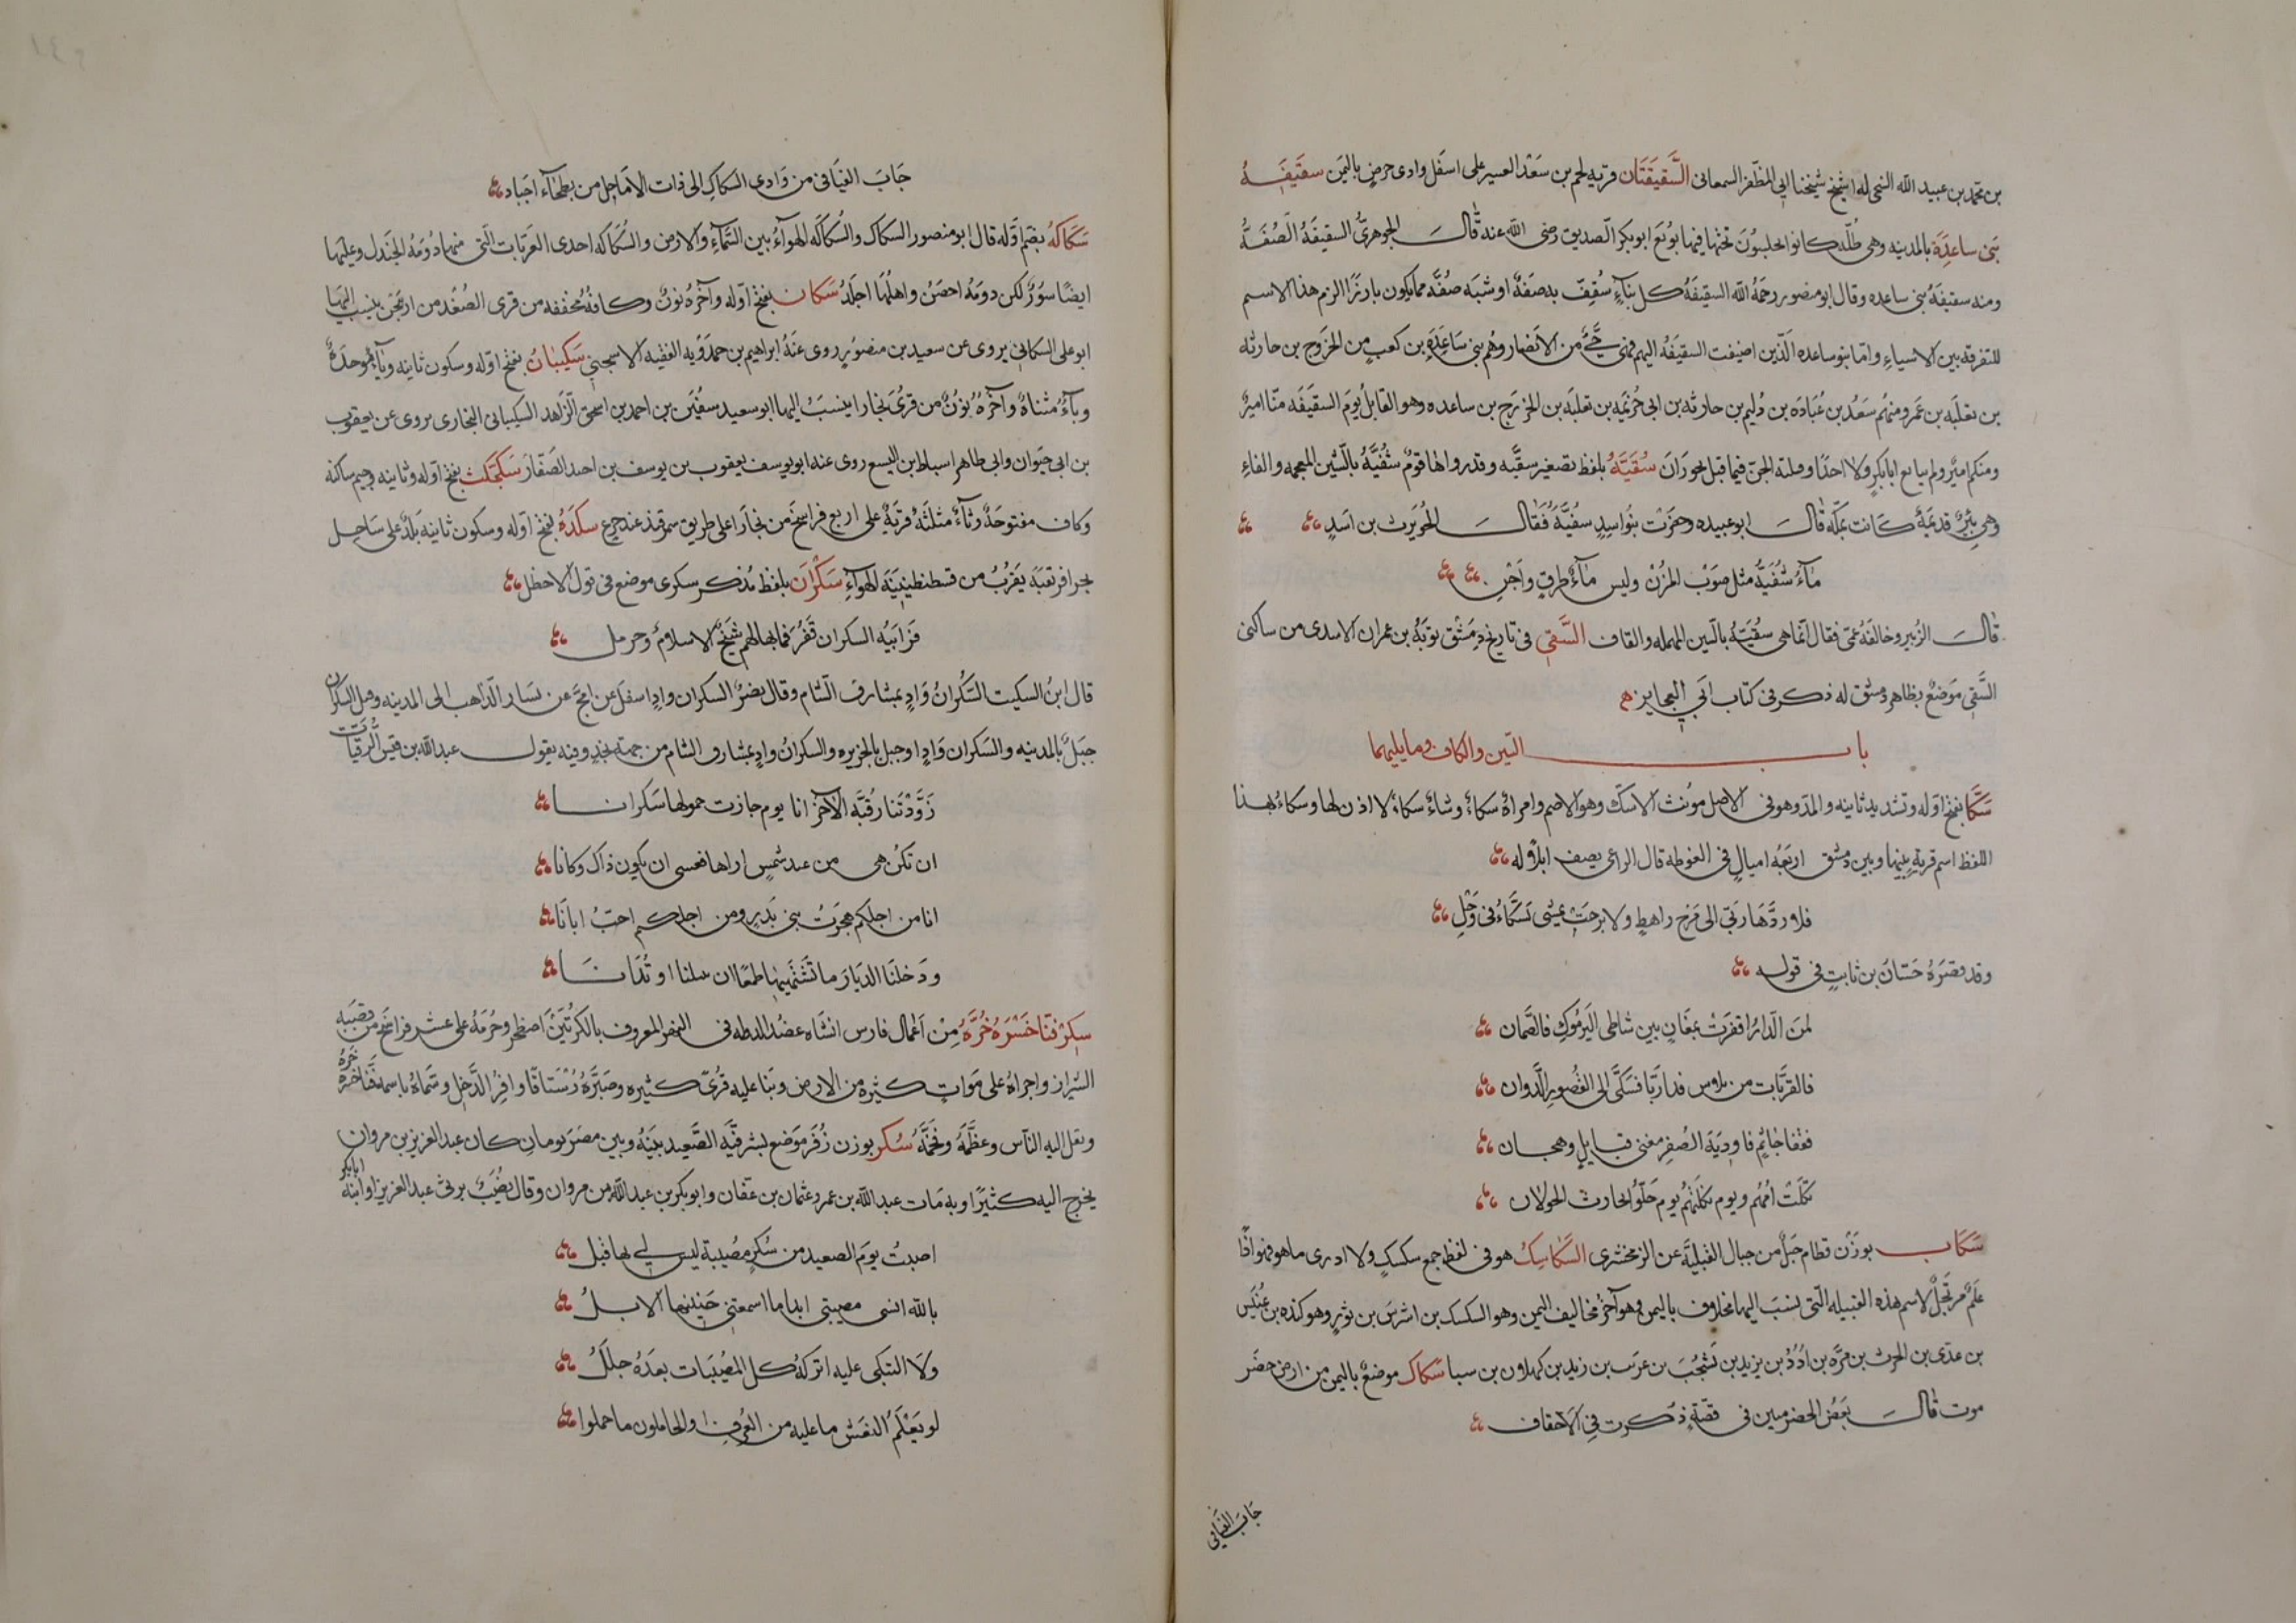 بن محمد بن عبيد الله النجى له اشيخ شيخنا ابى المظفر السمعانى السَّقيفَتَان قريه لحم بن سَعْد العسير على اسفَل وادى حرض باليمَن سقيفَهُ
بَنى ساعِدَة بالمدينه وهى ظُلّه كانوا يجلسُونَ تحتها فيها بويعَ ابو بكر الصّديق رضى الله عنه قال الجوهرىُّ السقيفَهُ الصُفَهُ
ومنه سقيفَهُ بنى ساعده وقال ابو منصور رحمهُ الله السقيفَهُ كل بنآءٍ سُقِفَ به صفهٌ او شبه صُفّه مما يكون بارزًا الزم هذا الاسم
للتفرقه بين الاشياءِ وامّا بنو ساعده الّذين اضيفت السقيفَهُ اليهم فهى حىٌّ من الانصار وهُم بنى سَاعِدَةِ بن كعبٍ من الخزرج بن حارثه
بن ثعلَبَه بن عَمرو منهُم سَعْدُ بن عُبَادَه بن دُليم بن حارثه بن ابى حُزيمَه بن ثعلبَه بن الخزرَج بن ساعده وهو القايلُ يومَ السقيفَه منّا اميرٌ
ومنكم اميرٌ ولم يبايع ابا بكرٍ ولا احدًا وقتلته الجن فيما قيل بحورَانَ سُقيَّهُ بلفظ تصغير سقيَّه وقد رواها قومٌ شُفَيَّهُ بالشّين المعجمه والفاءِ
وهى بئرٌ قديمَهٌ كانت بمكّه قال ابو عبيده وحفَرت بنُو اسدٍ سُقيَّهُ فقال الحُوَيرث بن اسَدٍ
مآءُ شُفَيَّهُ مثل صَوْب المُزنْ وليس مآءٌ طرقٍ واَجْنِ
قال الزُبير وخالفَهُ عمّى فقال انّما هى سُقيَّهُ بالسّين المهمله والقاف السَّقى فى تاريخ دِمَشْق توبَهُ بن عمران الاسدى من ساكنى
السَّقى مَوضعٌ بظاهر دمشق له ذكر فى كتاب ابَى العجايز
باب السّين والكاف وما يليهما
سَكَّا بفتح اوّله وتشديد ثانيه والمدّ وهو فى الاصل مونث الاسكّ وهو الاصم وامراةٌ سكاءُ وشاةٌ سكاءُ لا اذن لها وسكاءُ بهذا
اللفظ اسم قريةٍ بينها وبين دمشق اربَعَهُ اميالٍ فى الغوطه قال الراعى يصف ابلًا له
فلا ردَّها ربّى الى مَرْج راهطٍ ولا برحَتْ تمشى بسَكّاءُ فى وَحْلِ
وقد قصرَهُ حَسّان بن ثابتٍ فى قوله
لمَنَ الدّارُ اقفرَتْ بمَعَانٍ بين شاطى اليَرمُوكِ فالصَّمان
فالقرَيَّات من بلاس فدارَيّا فسَكَّى الى القُصُورِ الدَّوان
فقفا جاثمٍ فاودِيَة الصُفرِ مغنى قبايلٍ وهجان
ثكلَتْ اُمُّهُم ويوم ثكلتهُمُ يوم حَلّوُ الحارث الجولان
سَكَاب بوَزْن قطام جَبَلٌ من جبال القبليّه عن الزمخشرى السَّكاسِكُ هو فى لفظ جمع سكسكٍ ولا ادرى ما هو فهو اذًا
علمٌ مرتَجلٌ لاسم هذه القبيله الّتى نسبَ اليها مخلاف باليمن وهو آخرُ مخاليف اليمن وهو السكسك بن اشرَس بن ثورٍ وهو كنده بن عُفَيْر
بن عدّى بن الحرث بن مرّه بن اُدَدْ بن يزيد بن يَشجُبَ بن عرَيب بن زيد بن كهلان بن سبا سَكاك موضعٌ باليمن من ارض حضر
موت قال بَعضُ الحضرميين فى قصّهٍ ذكرت فى الاحقاف
جَابَ الفيَافى
جَابَ الفيَافى من وَادى السكاكِ الى ذات الاَماحِل من بطحَآءِ اجيادِ
سَكَاكَهُ بضم اوّله قال ابو منصور السكاك والسُكاكَه الهوآءُ بين السَّمآءِ والارض والسُكاكه احدى القرَيات الّتى منها دُومَهُ الجَندل وعليهَا
ايضًا سوَرٌ لكن دومَهُ احصَنُ واهلُهَا اجلَدُ سَكان بفتح اوّله وآخرهُ نونٌ وكافهُ مخففه من قرى الصُغد من اربَنجن ينسب اليهَا
ابو على السكانى يروى عن سعيد بن منصوُرٍ روى عنهُ ابراهيم بن حمدَوُيه الفقيه الاسجنى سَكيبَانُ بفتح اوّله وسكون ثانيه ويآءٍ موحدةٌ
ويآءٌ مثناةٌ وآخرُهُ نوُنٌ من قرُى بخارا ينسَبُ اليها ابو سعيد سفيَن بن احمد بن اسحق الزّاهد السكيبانى البخارى يروى عن يعقوب
بن ابى حيَوان وابى طاهر اسباط ابن اليسع روى عنه ابو يوسف يعقوب بن يوسف بن احيد الصَفّار سَكجَكَث بفتح اوّله وثانيه وجيم ساكنه
وكاف مفتوحَهٌ وثآءٌ مثلثهٌ قريَهٌ على اربع فراسَخَ من بخارَا على طريق سمرقند عند جرغ سكدَهُ بفتح اوّله وسكون ثانيه بَلدٌ على سَاحِل
بحر افريقيَه يقرُبُ من قسطنطينيَه الهوآءِ سَكْرَانَ بلفظ مُذكر سكرى موضع فى قول الاخطل
فرَابيَه السكران قَفرُ فما بها لهم شَبَحٌ الا سلامٌ وحرمل
قال ابنُ السكيت السَّكرَانُ وَادٍ بمشارف الشام وقال نصرٌ السكران وادٍ اسفَل عن امَجَ عن يسَار الذّاهب الى المدينه وقيل السَكران
جبَلٌ بالمدينه والسَكران وَادٍ او جبل بالجزيره والسكرانُ وادٍ بمشارف الشام من جهته نجدٍ وفيه يقول عبد الله بن قيس الرُقيّات
زَوَّدَتْنَا رُقيَّه الاحزانا يوم جازت حمولها سَكرانا
ان تكن هى من عبد شمسٍ اراها فعسى ان يكون ذاك وكانا
انا من اجلكم هجَرتُ بنى بَدرٍ ومن اجلكم احبّ ابانَا
ودَخلنَا الديارَ ما تَشتهيها طمعًا ان تنلنا او تُدَانَا
سكِر فنا خسْرَهْ خُرَّهُ مِنْ اَعْمال فارس انشَاه عضُد الدوله فى النهر المعروف بالكر بَيَن اصطخر وخُرمَه على عشر فراسخَ من قصَبَه
الشيراز واجراهُ على موَاتٍ كثيرة من الارض وبَنا عليه قرىً كثيره وصيَّرهُ رُسْتَاقًا وافِرُ الدَّخل وسَمّاهُ باسمه فنَاخُرهُ خرّه
ونقل اليه النّاس وعظّمَهُ وفخَّمَهُ سُكر بوزن زُفَرَ مَوضع بشرقيَّه الصَّعيد بينَهُ وبين مصَر يومان كان عبد العزيز بن مروان
يخرج اليه كثيرًا وبه مَات عبد الله بن عمرو عثمان بن عفّان وابو بكر بن عبد الله من مروان وقال نُصَيْبُ يرثى عبد العزيز او ابنهُ ابا بكر
اصبتُ يوَمَ الصعيد من سُكرٍ مصُيبة ليس لى بها قبل
بالله انسى مصيبتى ابدا ما اسمعتنى حَنينها الابلُ
ولا التبكى عليه اترَكهُ كل المصُيبَات بعدَهُ جلَلُ
لو يَعْلَمُ النعَش ما عليه من العُرفِ والحاملون ما حملوا